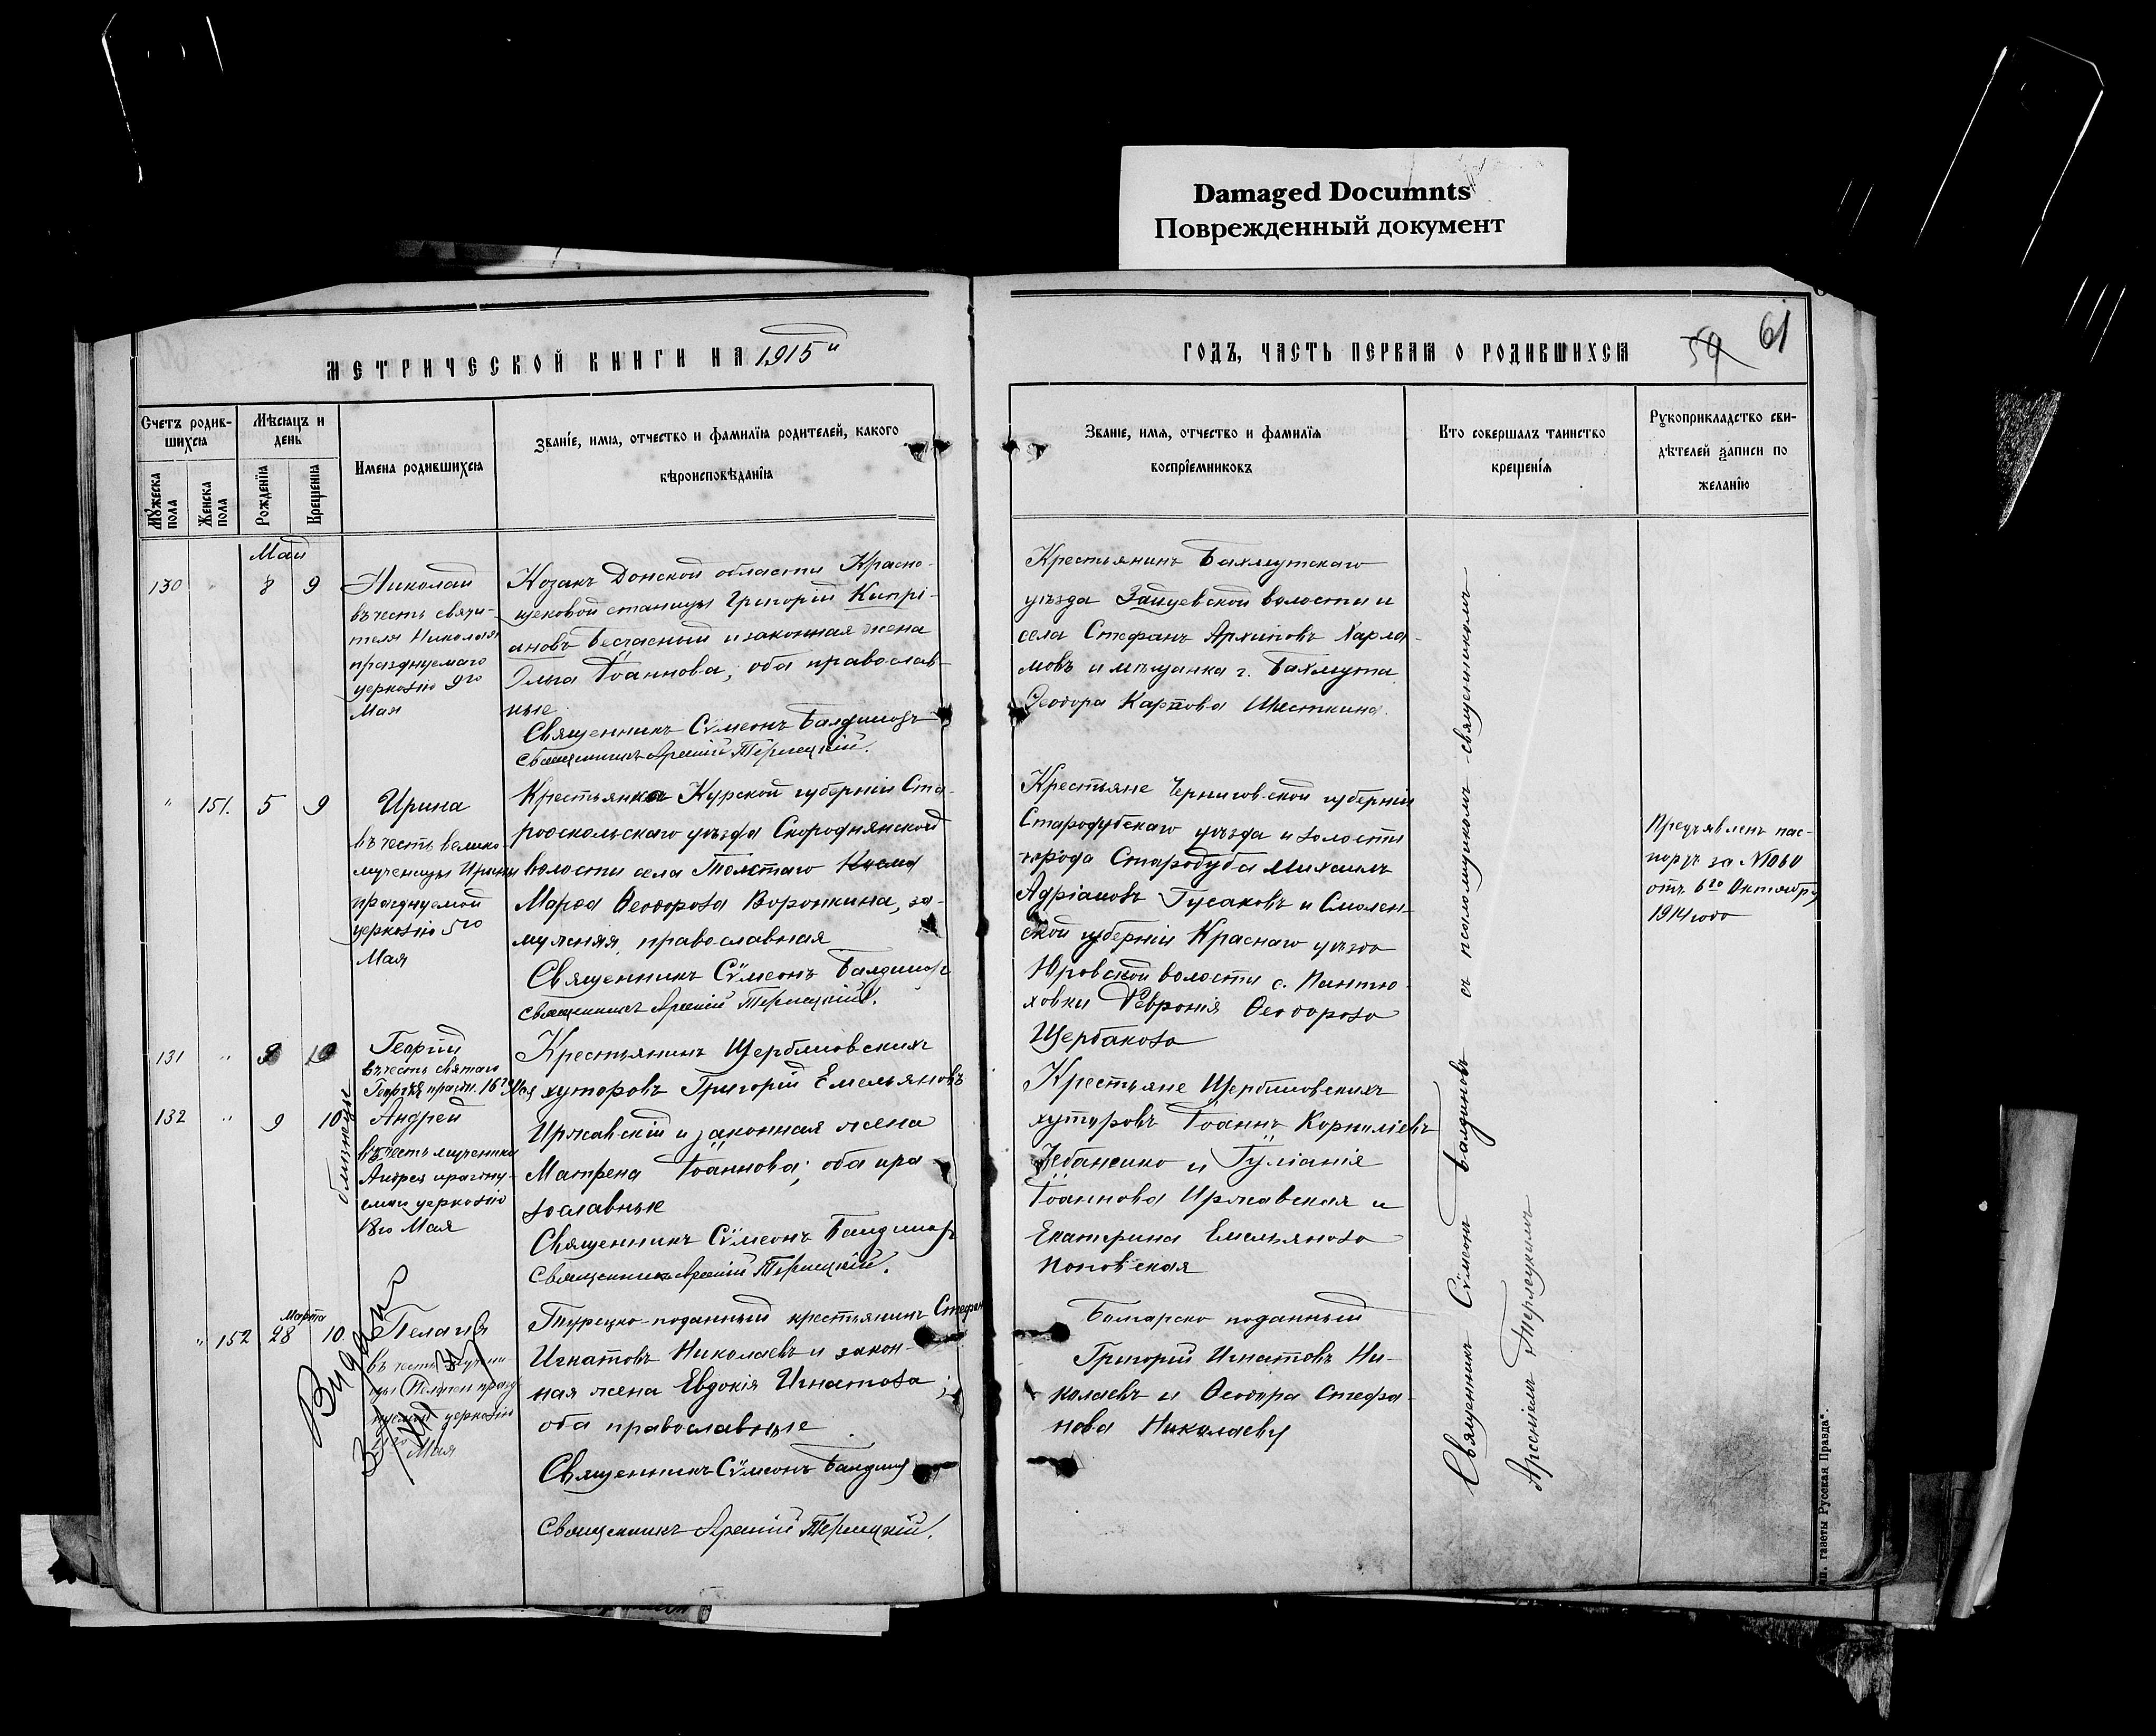 Damaged Documnts
Поврежденный документ
МЕТРИЧЕСКОЙ КНИГИ НА 1915й
ГОДЪ, ЧАСТЬ ПЕРВАЯ О РОДИВШИХСЯ
59
61
Счетъ родив-
шихся
Мѣсяцъ и
день
Мужеска
пола
Женска
пола
Рожденія
Крещенія
Имена родившихся
Званіе, имя, отчество и фамилія родителей, какого
вѣроисповѣданія
Званіе, имя, отчество и фамилія
воспріемниковъ
Кто совершалъ таинство
крещенія
Рукоприкладство сви-
дѣтелей записи по
желанію
Май
130 " 8 9
Николай
въ честь святи-
теля Николая
празднуемаго
церковію 9го
Мая
Козакъ Донской области Красно-
щековой станицы Григорій Кипрі-
ановъ Безчасный и законная жена
Ольга Іоаннова, оба православ-
ные
Священникъ Сѵмеонъ
Священникъ Арсеній Терлецкій.
Крестьянинъ Бахмутскаго
уѣзда Зайцевской волости и
села Стефанъ Архиповъ Харла-
мовъ и мѣщанка г. Бахмута
Ѳеодора Карпова
" 151. 5 9
Ирина
въ честь велико-
мученицы Ирины
празднуемой
церковію 5го
Мая
Крестьянка Курской губерніи Ста-
рооскольскаго уѣзда Скороднянской
волости села Толстаго
Марѳа Ѳеодорова Воронкина, за-
мужняя, православная
Священникъ Сѵмеонъ
Священникъ Арсеній Терлецкій.
Крестьяне Черниговской губерніи
Стародубскаго уѣзда и волости
города Стародуба Михаилъ
Адріановъ Гусаковъ и Смолен-
ской губерніи Краснаго уѣзда
Юровской волости с. Пантю-
ховки Февронія Ѳеодорова
Щербакова
Предъявленъ пас-
портъ за №
отъ 6го Октября
1914 года
131 " 9 10
Георгій
въ честь святаго
Георгія праздн. 16го Мая
132 " 9 10
близнецы
Андрей
въ честь мученика
Андрея праздну-
емаго церковію
18го Мая
Крестьянинъ Щербиновскихъ
хуторовъ Григорій Емельяновъ
Иржавскій и законная жена
Матрена Іоаннова; оба пра-
вославные
Священникъ Сѵмеонъ
Священникъ Арсеній Терлецкій.
Крестьяне Щербиновскихъ
хуторовъ Іоаннъ Корниліевъ
и Іуліанія
Іоаннова Иржавская и
Екатерина Емельянова
Марта
" 152 28 10
Пелагія
въ честь мучени-
цы Пелагіи празд-
нуемой церковію
Мая
Турецко-поданный крестьянинъ Стефанъ
Игнатовъ Николаевъ и закон-
ная жена Евдокія Игнатова;
оба православные
Священникъ Сѵмеонъ
Священникъ Арсеній Терлецкій.
Болгарско поданный
Григорій Игнатовъ Ни-
колаевъ и Ѳеодора Стефа-
нова
Священникъ Сѵмеонъ съ псаломщикомъ-священникомъ
Арсеніемъ Терлецкимъ
газеты Русская Правда".